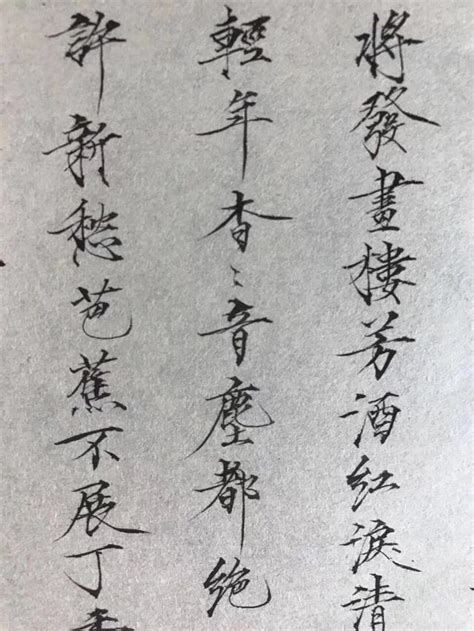 將發畫樓芳酒紅淚清
輕年杳〻音塵都絕
許新愁芭蕉不展丁香